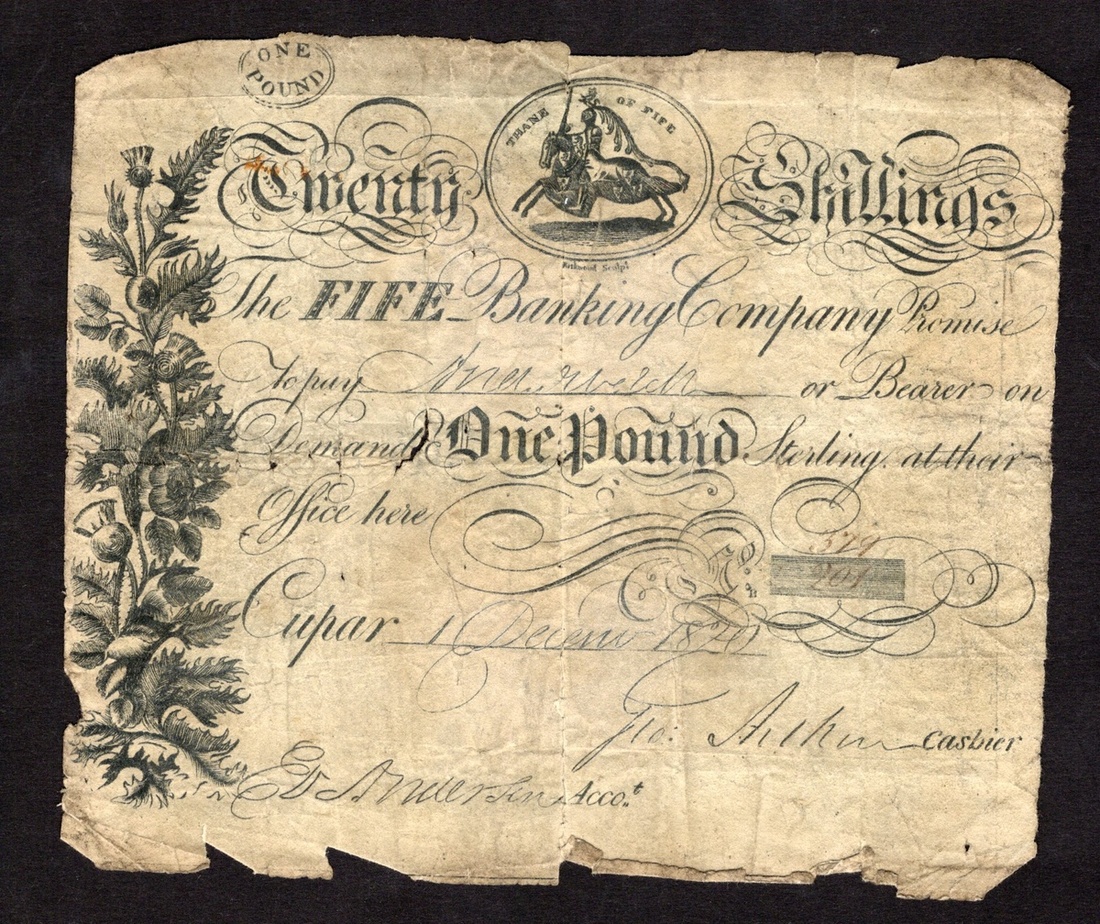 ONE
POUND
THANE OF FIFE
Twenty Shillings
Kirkwood Sculpt
The FIFE Banking Company Promise
to pay or Bearer on
Demand One Pound Sterling at their
Office here
No.
379
204
Cupar 1 Decemr 1820
Geo: Aitken Cashier
D Anderson Accot.